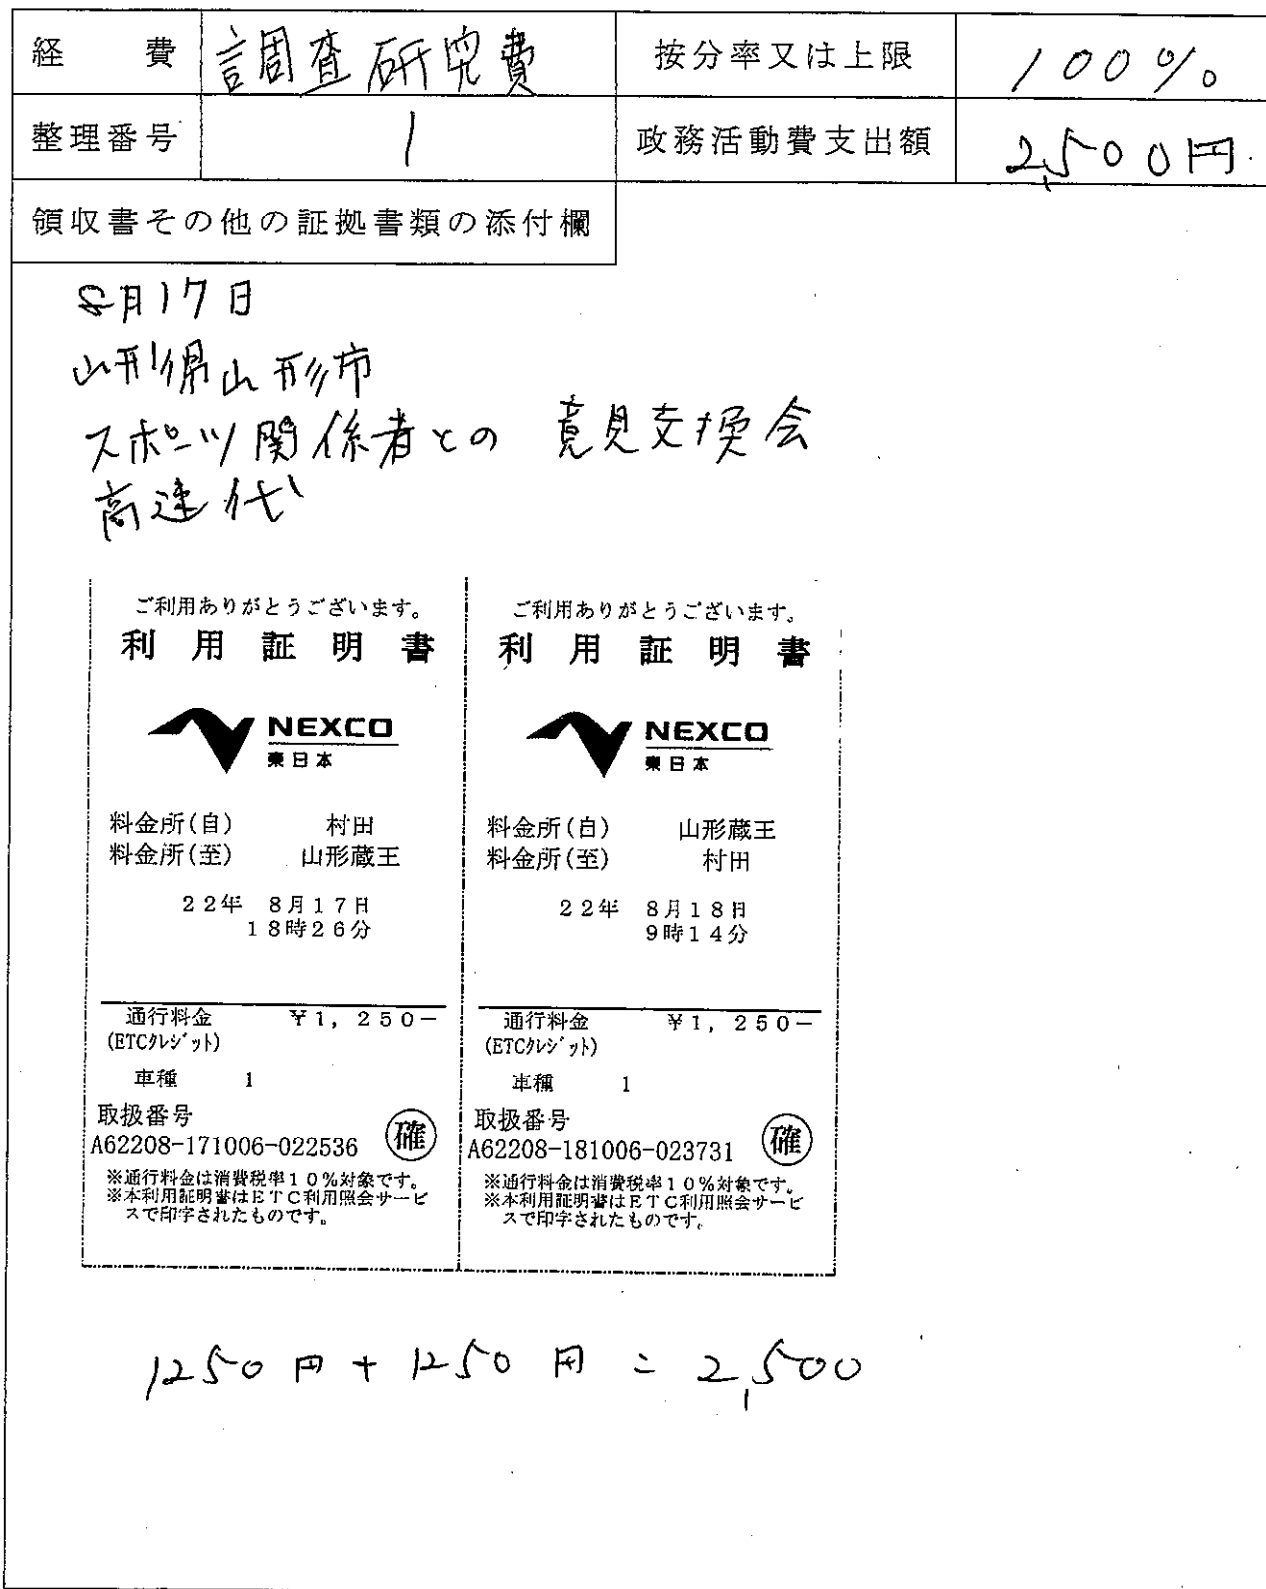 経　費 調査研究費 按分率又は上限 100%
整理番号 1 政務活動費支出額 2,500円
領収書その他の証拠書類の添付欄
8月17日
山形県山形市
スポーツ関係者との 意見交換会
高速代
ご利用ありがとうございます。
利用証明書
NEXCO
東日本
料金所(自) 村田
料金所(至) 山形蔵王
22年 8月17日
18時26分
通行料金 ¥1,250−
(ETCクレジット)
車種 1
取扱番号
A62208-171006-022536 確
※通行料金は消費税率10%対象です。
※本利用証明書はETC利用照会サービ
スで印字されたものです。
ご利用ありがとうございます。
利用証明書
NEXCO
東日本
料金所(自) 山形蔵王
料金所(至) 村田
22年 8月18日
9時14分
通行料金 ¥1,250−
(ETCクレジット)
車種 1
取扱番号
A62208-181006-023731 確
※通行料金は消費税率10%対象です。
※本利用証明書はETC利用照会サービ
スで印字されたものです。
1250円 + 1250円 = 2,500